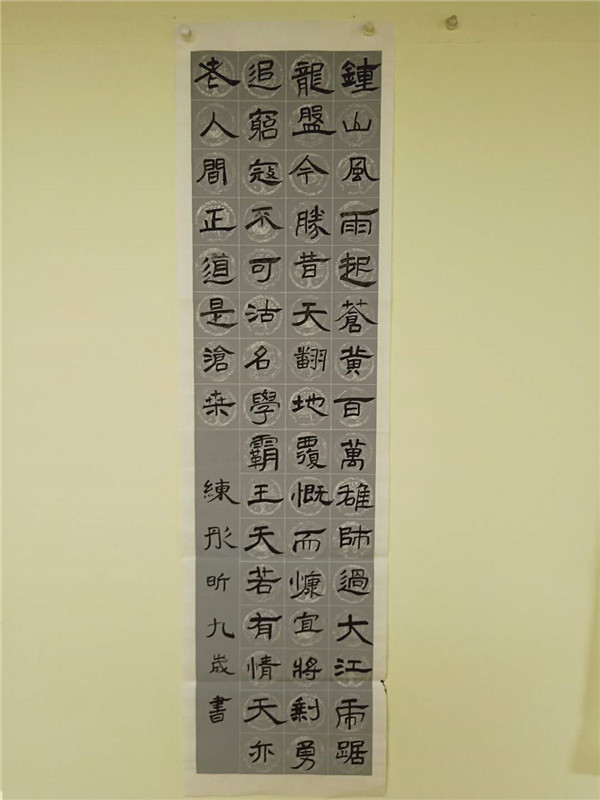 鍾山風雨起蒼黃百萬雄師過大江虎踞
龍盤今勝昔天翻地覆慨而慷宜將剩勇
追窮寇不可沽名學霸王天若有情天亦
老人間正道是滄桒
練彤昕九歲書